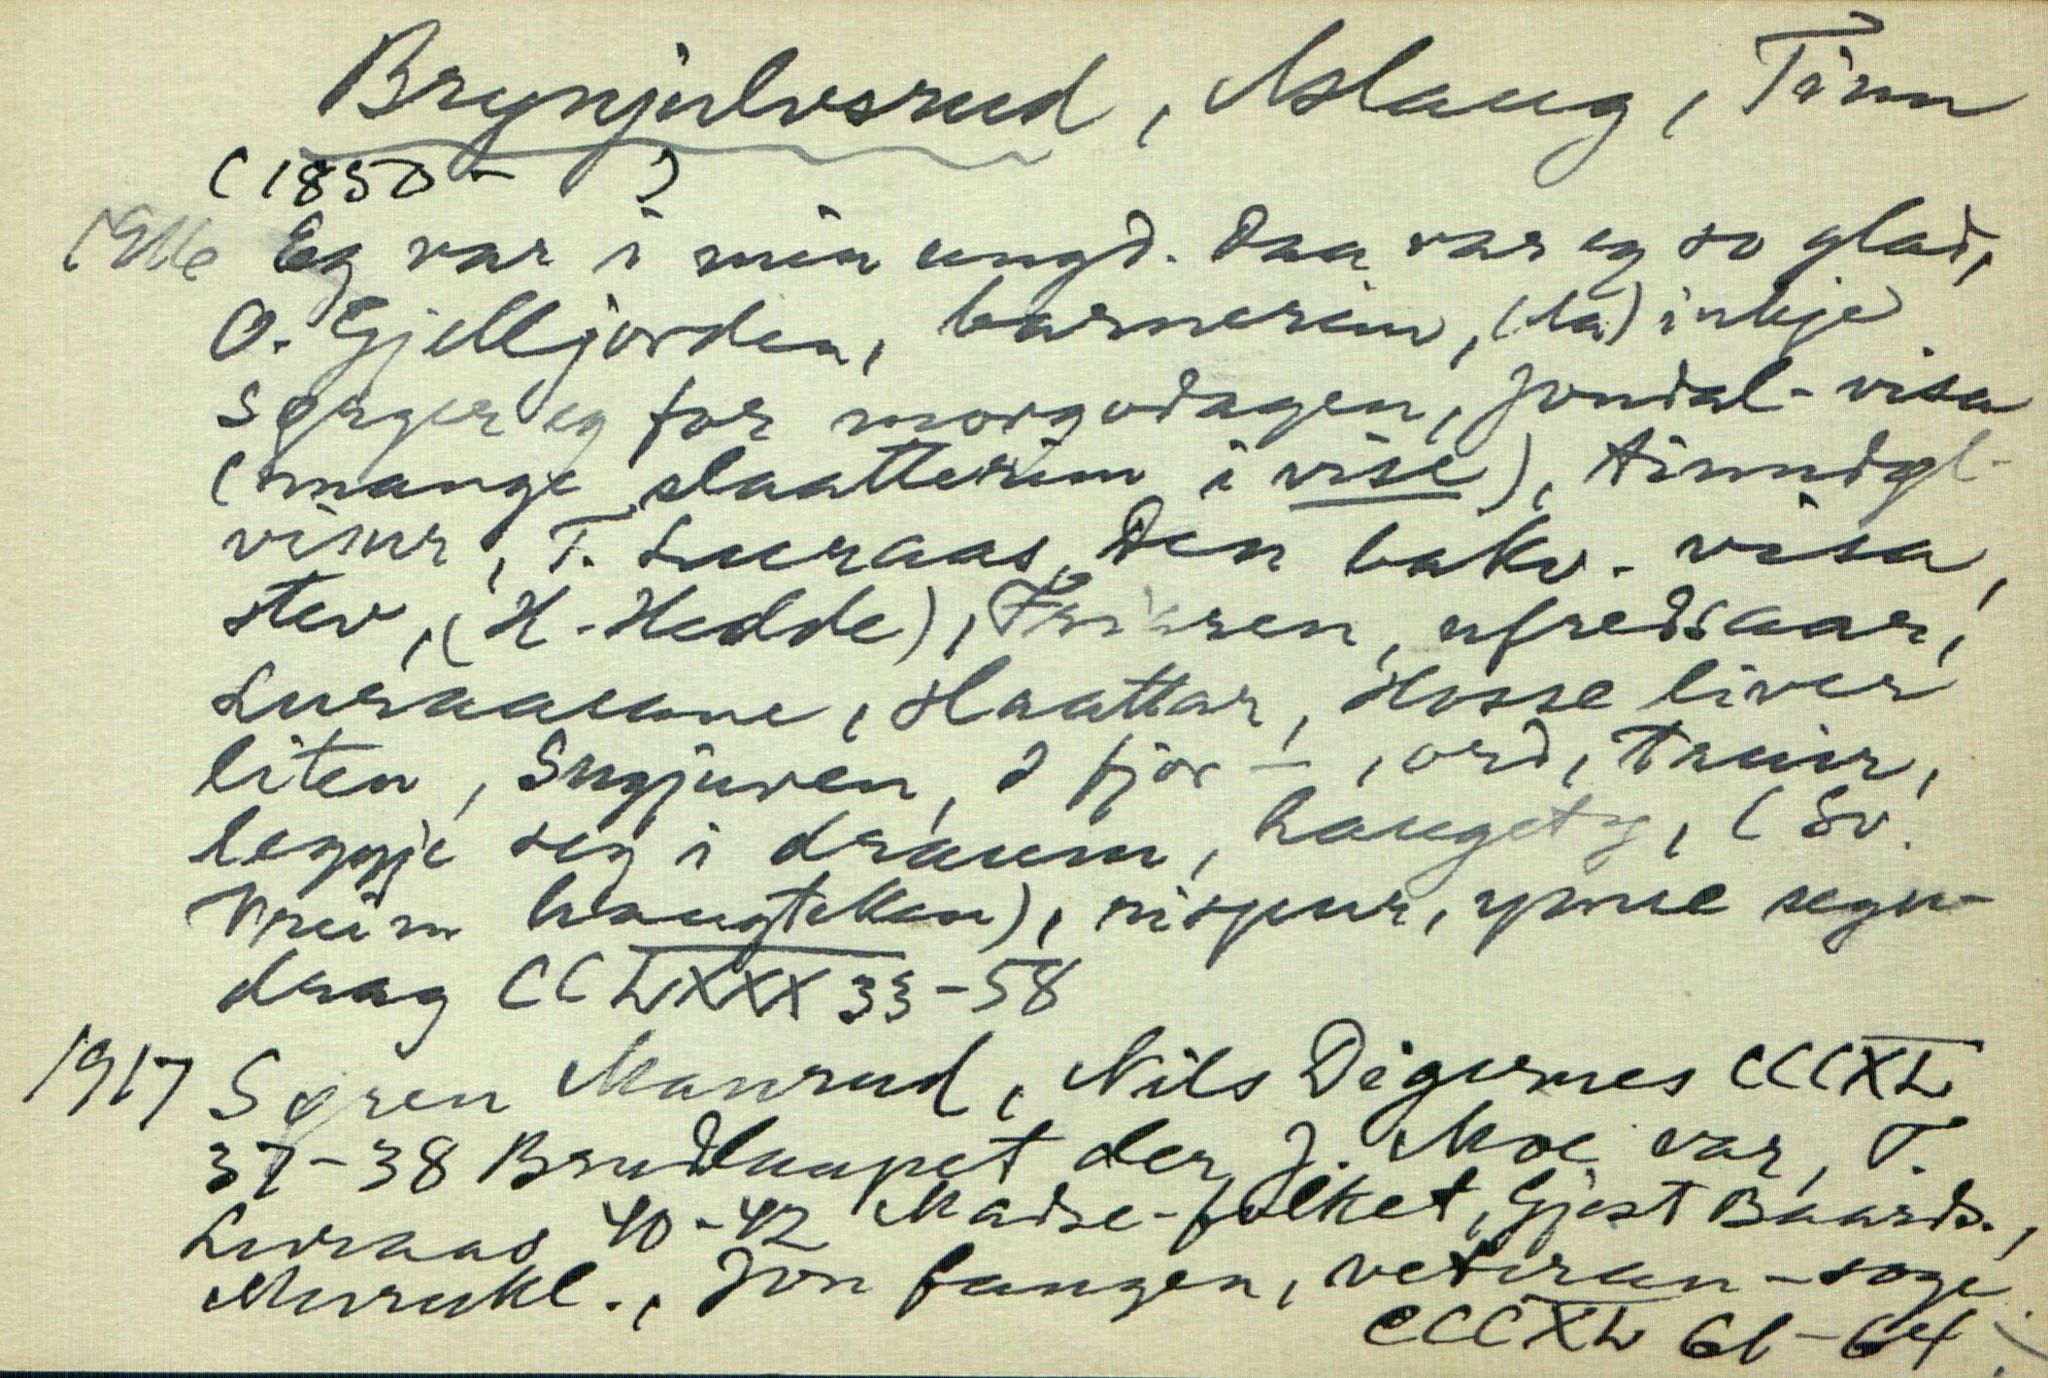 Brynjulvsrud, Aslaug, Tinn
(1850 - )
1916 Eg var i min ungd. Daa var eg so glad,
O. Gjelljorden, barnerim, (da) inkje
sørger eg for morgodagen, Jondal-visa
(mange slaatterim i vise),
visur, T. Luraas, Den bakv. visa,
stev, (H. Hedde), ufredsaar,
Luraasane, slaattar, Hosse liver
liten, I fjor -, ord, truir,
leggje seg i draum, haugety, (Sv.
Vreim haugtekken), rispur, ymse segn-
drag CCLXXX 33-58
1917 Søren Manrud, Nils Digernes CCCXL
37-38 Brudlaupet der J. Moe var, T.
Luraas 40-42 Madse-folket, Gjest Baards.,
Murukl., Jon fangen, veteran-soge
CCCXL 61-64